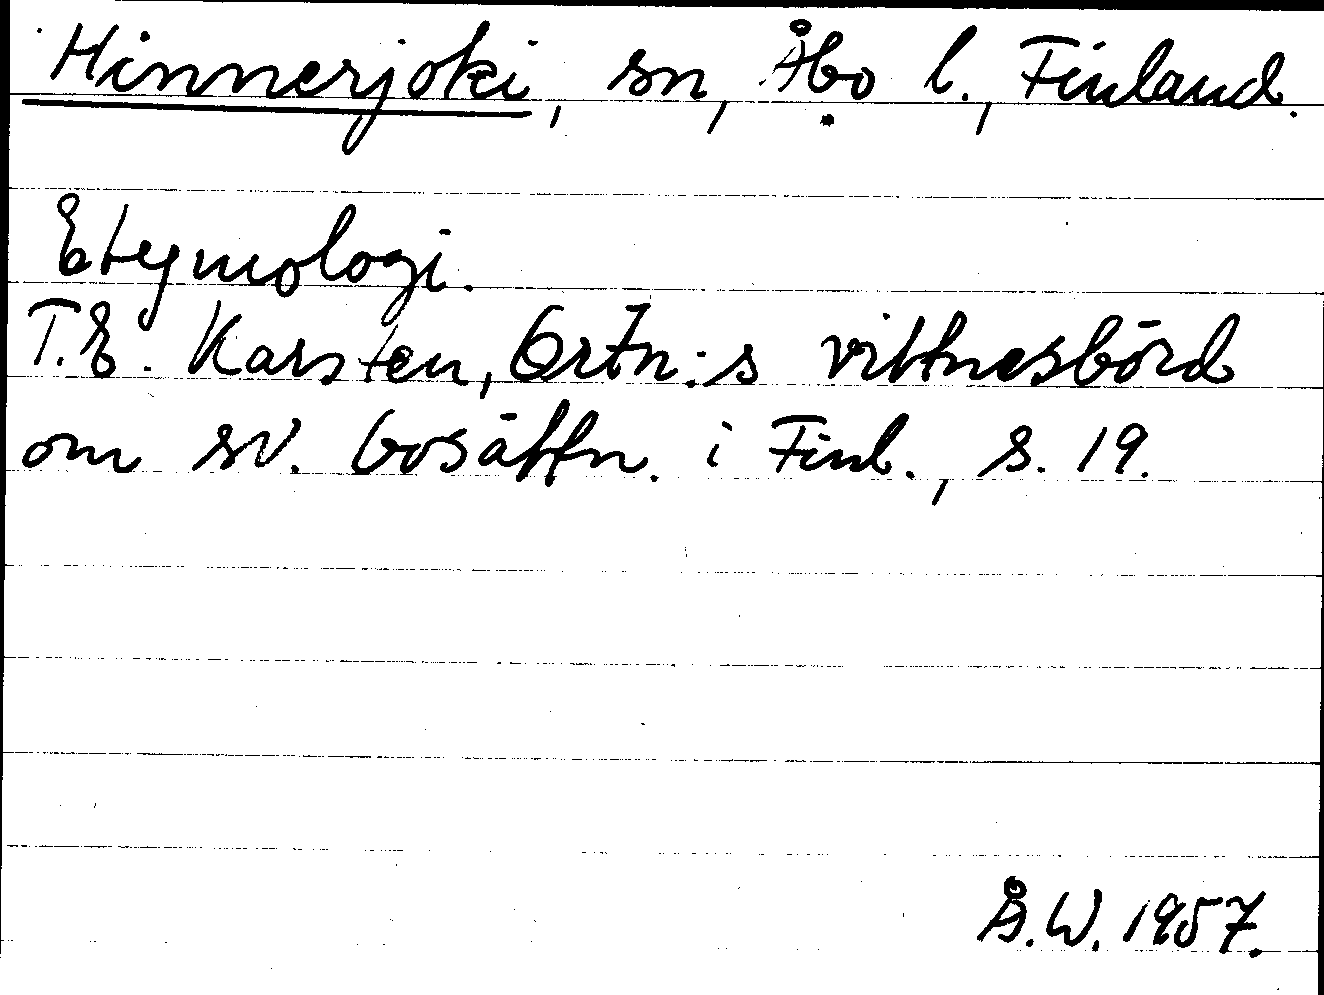 Hinnerjoki, sn, Åbo l., Finland.
Etymologi.
T.E. Karsten, Ortn:s vittnesbörd
om sv. bosättn. i Finl., s. 19.
Å.W. 1957.